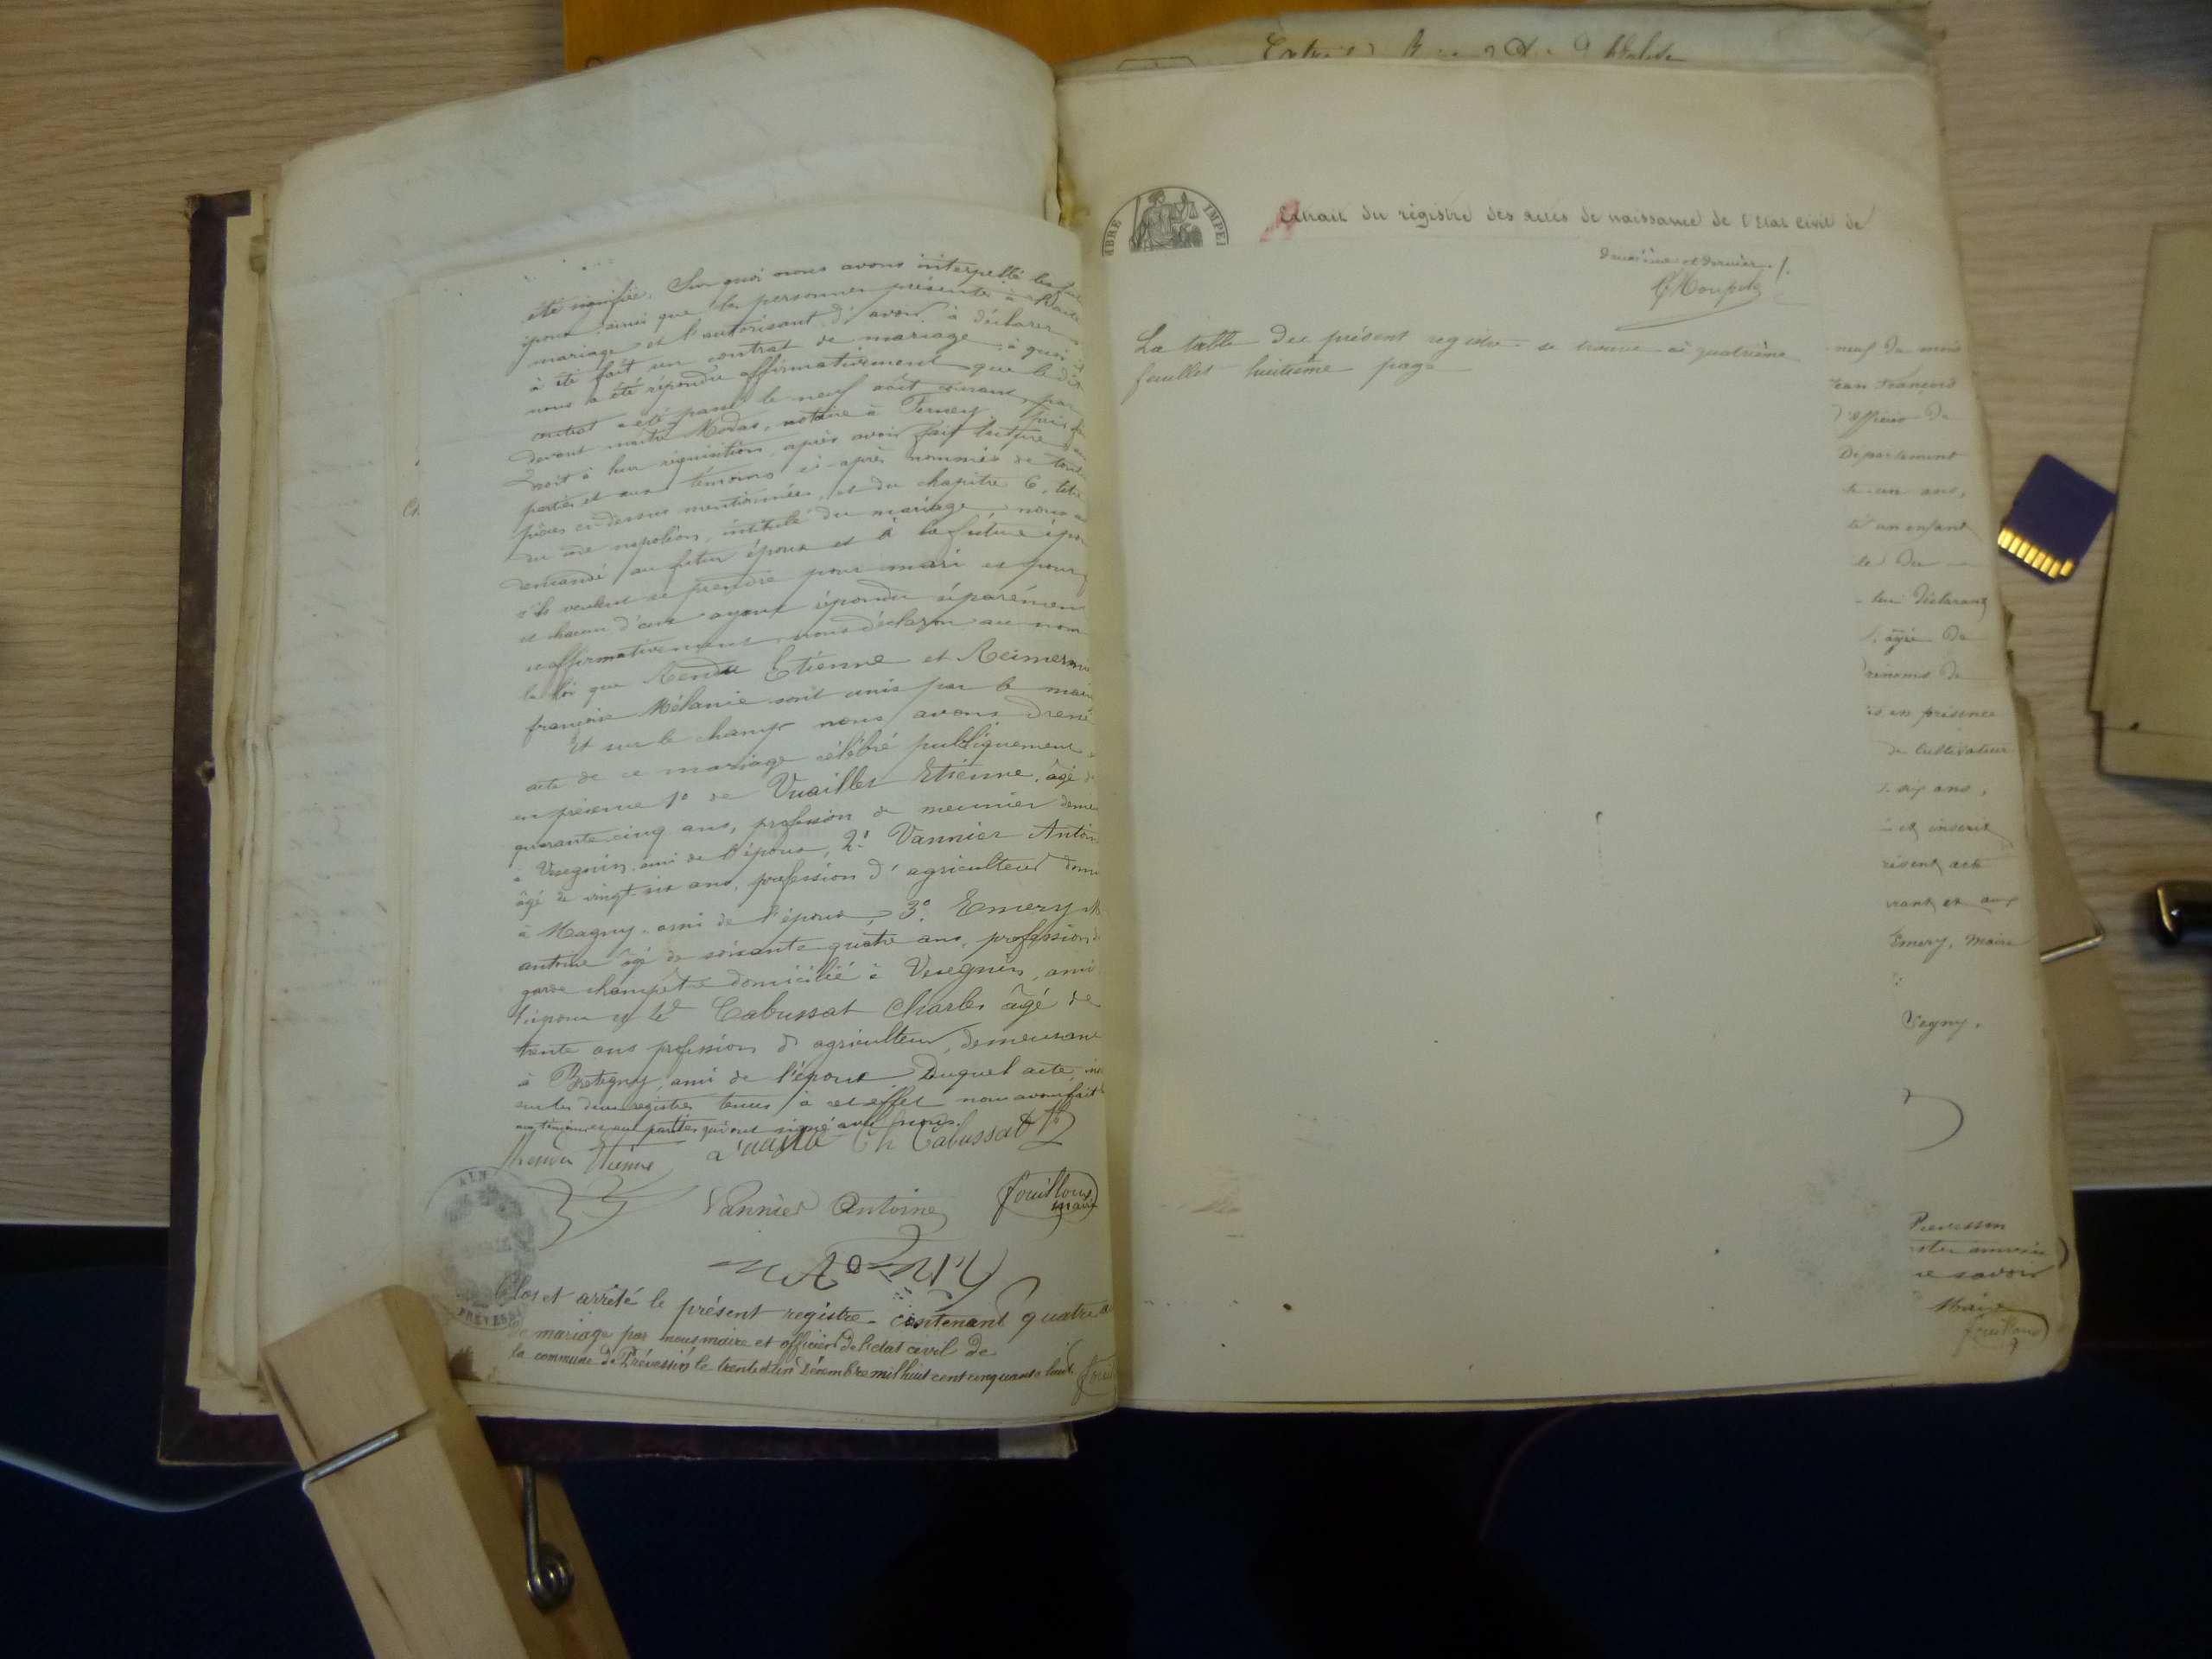 été signifié. Sur quoi nous avons interpellé les
époux ainsi que les personnes présentes à
mariage et l'autorisant d'avoir à déclarer
à été fait un contrat de mariage, à quoi il
nous a été répondu affirmativement que le dit
contrat a été passé le neuf août courant, par
devant maître Modas, notaire à Ferney,
droit à leur réquisition, après avoir fait lecture aux
parties et aux témoins ci-après nommés de toutes
pièces ci-dessus mentionnées, et du chapitre 6, titre
du code napoléon, intitulé du mariage, nous
demandé au futur époux et à la future épou
s'ils veulent se prendre pour mari et pour
et chacun d'eux ayant répondu séparémen
affirmativement nous déclarons au nom
la loi que Rendu Etienne et
françoise Mélanie sont unis par le mari
Et sur le champ nous avons dressé
acte de ce mariage célébré publiquement
en présence 1º de Vuaillet Etienne, âgé de
quarante cinq ans, profession de meunier deme
à Vesegnin, ami de l'époux, 2º Vannier Antoin
âgé de vingt six ans, profession d'agriculteur dom
à Magny, ami de l'époux, 3º Emery
antoine âgé de soixante quatre ans, profession de
garde champêtre domicilié à Vesegnin, ami
l'époux et Cabussat Charles âgé de
trente ans profession d'agriculteur, demeurant
à Bretigny, ami de l'époux Duquel acte, ins
sur les deux registres tenus à cet effet nous avons fait
aux témoins et aux parties qui ont signé avec nous.
Rendu Etienne Ch Cabussat
Vannier Antoine fouilloux
maire
AIN
Clos et arrêté le présent registre contenant quatre
de mariage par nous maire et officier de l'etat civil de
la commune de Prévessin le trente et un Décembre mil huit cent cinquante huit
TIMBRE IMPE
Extrait du régistre des actes de naissance de l'Etat Civil de
deuxième et dernier
La table du présent registre se trouve à quatrième
feuillet huitième page
neuf du mois
Jean François
d'officier de
Département
un ans,
té un enfant
le du
lui Déclarant
âgé de
rénoms de
en présence
de Cultivateur
six ans,
et inscrit
résent acte
rant et aux
Emery, Maire
Segny.
Prevessin
ce savoir
Maire
fouilloux